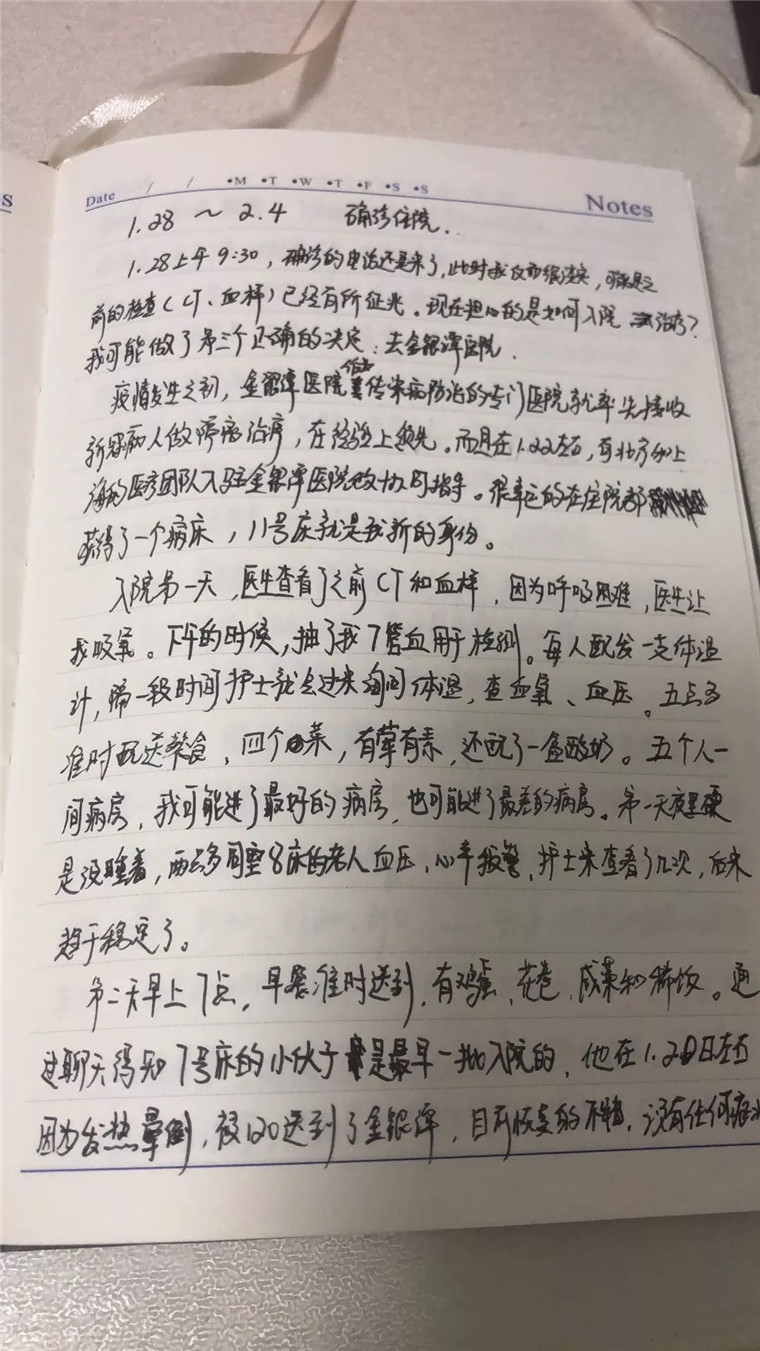 s
Date / / •M •T •W •T •F •S •S Notes
1.28 ~ 2.4 确诊住院.
1.28上午9:30，确诊的电话还是来了，此时我反而很淡定，可能是之
前的检查（CT、血样）已经有所征兆。现在担心的是如何入院治疗？
我可能做了第三个正确的决定：去金银潭医院.
疫情发生之初，金银潭医院作为传染病防治的专门医院就率先接收
新冠病人做隔离治疗，在经验上领先。而且在1.22左右，有北方和上
海的医疗团队入驻金银潭医院协同指导。很幸运的在住院部
获得了一个病床，11号床就是我新的身份。
入院第一天，医生查看了之前CT和血样，因为呼吸困难，医生让
我吸氧。下午的时候，抽了我7管血用于检测。每人配发一支体温
计，隔一段时间护士就会过来询问体温，查血氧、血压。五点多
准时配送餐食，四个菜，有荤有素，还配了一盒酸奶。五个人一
间病房，我可能进了最好的病房，也可能进了最差的病房。第一天夜里硬
是没睡着，两点多同室8床的老人血压、心率报警，护士来查看了几次，后来
趋于稳定了。
第二天早上7点，早餐准时送到，有鸡蛋、花卷、咸菜和稀饭。通
过聊天得知7号床的小伙子是最早一批入院的，他在1.20日左右
因为发热晕倒，被120送到了金银潭，目前恢复的不错，没有任何症状